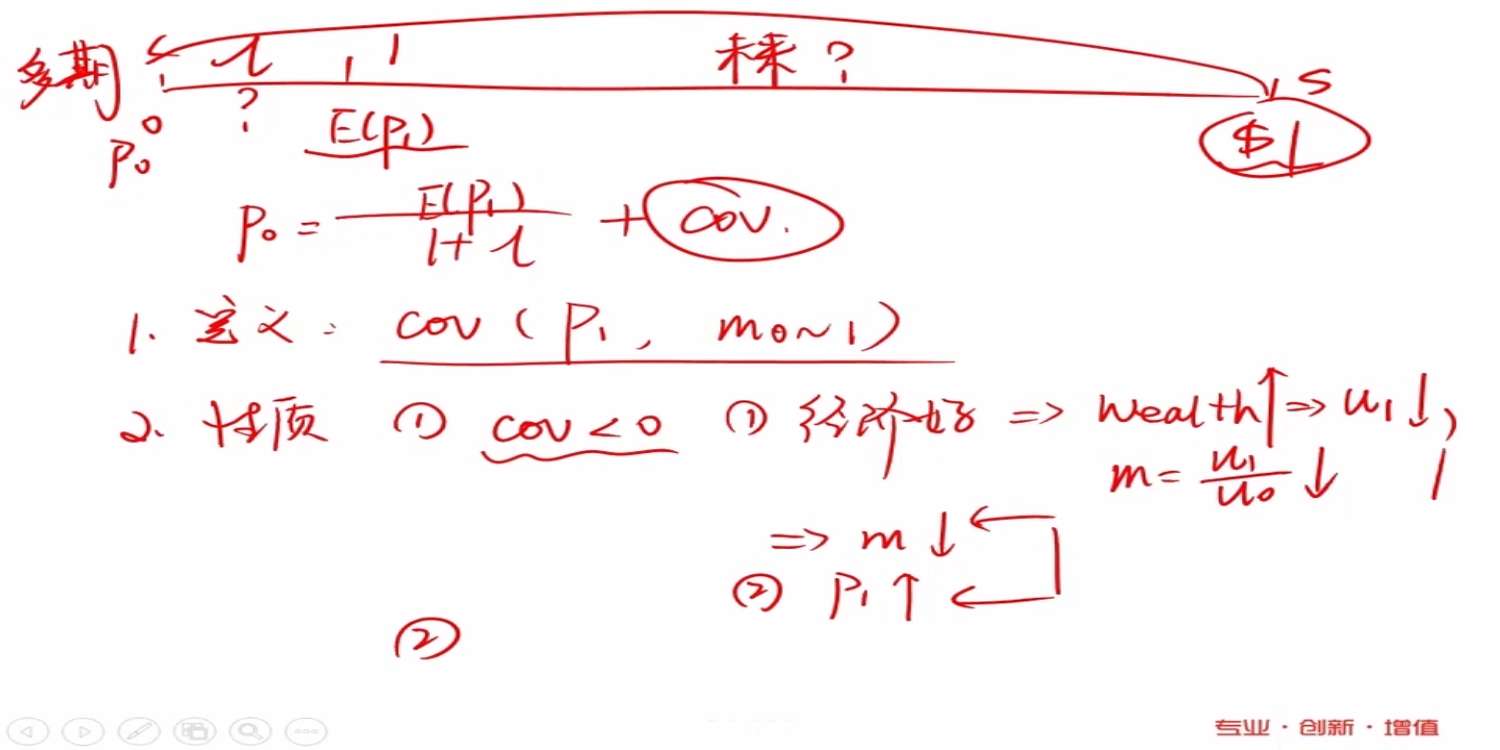 多期 r 1 未来? s
0 ? E(P₁) $1
P₀
P₀ = E(P₁) / (1+r) + cov.
1. 定义: cov(P₁, m₀~₁)
2. 性质 ① cov<0 ① 经济好 => wealth↑=> u₁↓,
m = u₁/u₀ ↓
=> m ↓
② P₁ ↑
②
专业·创新·增值